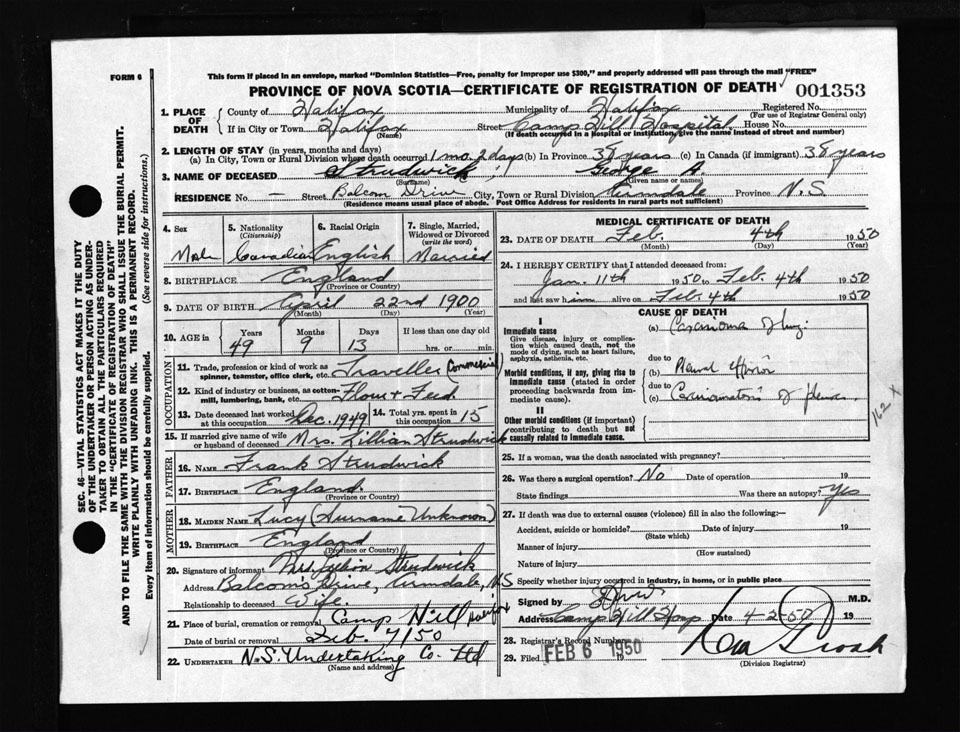 FORM 6
This form if placed in an envelope, marked "Dominion Statistics—Free, penalty for improper use $300," and properly addressed will pass through the mail "FREE"
PROVINCE OF NOVA SCOTIA—CERTIFICATE OF REGISTRATION OF DEATH 001353
1. PLACE OF DEATH
County of Halifax Municipality of Halifax Registered No.
(For use of Registrar General only)
If in City or Town Halifax Street Camp Hill Hospital House No.
(Name) (If death occurred in a hospital or institution, give the name instead of street and number)
2. LENGTH OF STAY (in years, months and days)
(a) In City, Town or Rural Division where death occurred 1 mo. 2 days (b) In Province 38 years (c) In Canada (if immigrant) 38 years
3. NAME OF DECEASED Strudwick, George A.
(Surname) (Given name or names)
RESIDENCE No. — Street Balcom Drive City, Town or Rural Division Armdale Province N.S.
(Residence means usual place of abode. Post Office Address for residents in rural parts not sufficient)
4. Sex
Male
5. Nationality (Citizenship)
Canadian
6. Racial Origin
English
7. Single, Married, Widowed or Divorced (write the word)
Married
8. BIRTHPLACE England
(Province or Country)
9. DATE OF BIRTH April 22nd 1900
(Month) (Day) (Year)
10. AGE in Years Months Days If less than one day old
49 9 13 hrs. or min.
OCCUPATION
11. Trade, profession or kind of work as spinner, teamster, office clerk, etc. Traveller (Commercial)
12. Kind of industry or business, as cotton-mill, lumbering, bank, etc. Flour & Feed
13. Date deceased last worked at this occupation Dec. 1949 14. Total yrs. spent in this occupation 15
15. If married give name of wife or husband of deceased Mrs. Lillian Strudwick
FATHER
16. NAME Frank Strudwick
17. BIRTHPLACE England.
(Province or Country)
MOTHER
18. MAIDEN NAME Lucy (Surname Unknown)
19. BIRTHPLACE England
(Province or Country)
20. Signature of informant Mrs. Lillian Strudwick
Address Balcom's Drive, Armdale, N.S
Relationship to deceased Wife.
21. Place of burial, cremation or removal Camp Hill Halifax
Date of burial or removal Feb. 7/50
22. UNDERTAKER N.S. Undertaking Co. Ltd
(Name and address)
MEDICAL CERTIFICATE OF DEATH
23. DATE OF DEATH Feb. 4th 1950
(Month) (Day) (Year)
24. I HEREBY CERTIFY that I attended deceased from:
Jan. 11th 1950 to Feb. 4th 1950
and last saw him alive on Feb. 4th 1950
CAUSE OF DEATH
I
Immediate cause
Give disease, injury or complication which caused death, not the mode of dying, such as heart failure, asphyxia, asthenia, etc.
(a) Carcinoma of lung.
due to
Morbid conditions, if any, giving rise to immediate cause (stated in order proceeding backwards from immediate cause).
Pleural
due to
(c) of pleura.
II
Other morbid conditions (if important) contributing to death but not causally related to immediate cause.
162 X
25. If a woman, was the death associated with pregnancy?
26. Was there a surgical operation? No Date of operation 19
State findings Was there an autopsy? Yes
27. If death was due to external causes (violence) fill in also the following:—
Accident, suicide or homicide? Date of injury 19
(State which)
Manner of injury
(How sustained)
Nature of injury
Specify whether injury occurred in industry, in home, or in public place
Signed by M.D.
Address Camp Hill Hosp Date 4-2-50 19
28. Registrar's Record Number
29. Filed FEB 6 1950 19
(Division Registrar)
SEC. 46—VITAL STATISTICS ACT MAKES IT THE DUTY
OF THE UNDERTAKER OR PERSON ACTING AS UNDERTAKER TO OBTAIN ALL THE PARTICULARS REQUIRED
IN THE "CERTIFICATE OF REGISTRATION OF DEATH"
AND TO FILE THE SAME WITH THE DIVISION REGISTRAR WHO SHALL ISSUE THE BURIAL PERMIT.
WRITE PLAINLY WITH UNFADING INK. THIS IS A PERMANENT RECORD.
Every item of information should be carefully supplied. (See reverse side for instructions.)